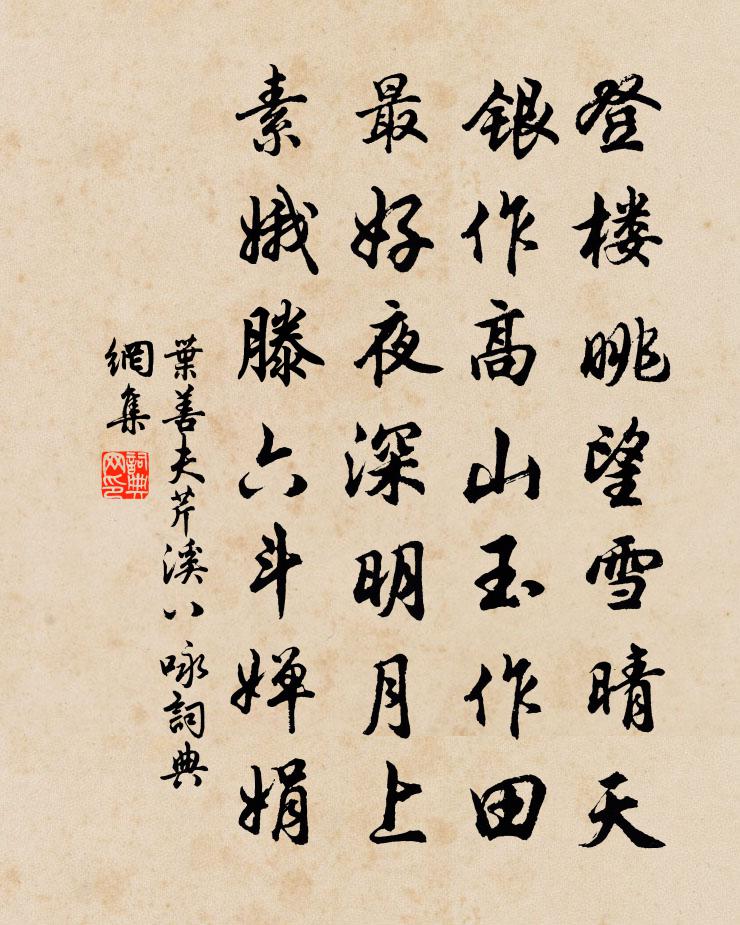 登楼眺望雪晴天
银作高山玉作田
最好夜深明月上
素娥滕六斗婵娟
葉善夫芹溪八咏詞典
網集
詞典网印